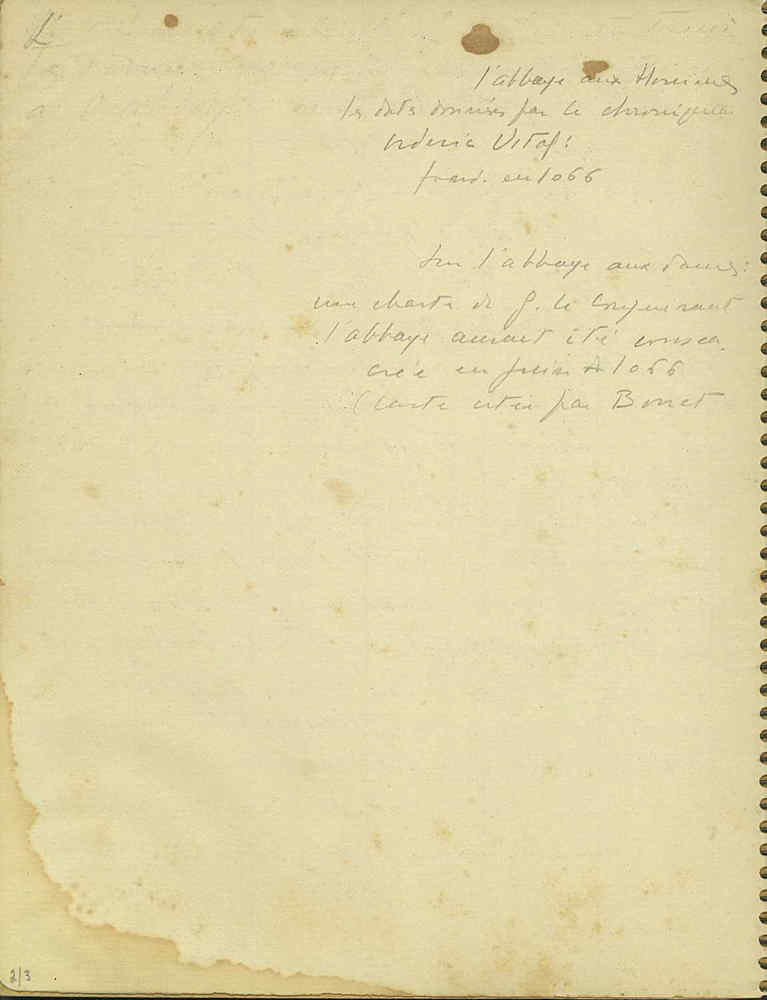 L'
l'abbaye aux Hommes
les dates données par le chroniqueur
Orderic Vital :
fond. en 1066
Sur l'abbaye aux dames :
une charte de G. le Conquérant
l'abbaye aurait été consa.
crée en juin 1066
(carte citée par Bouet
2/3